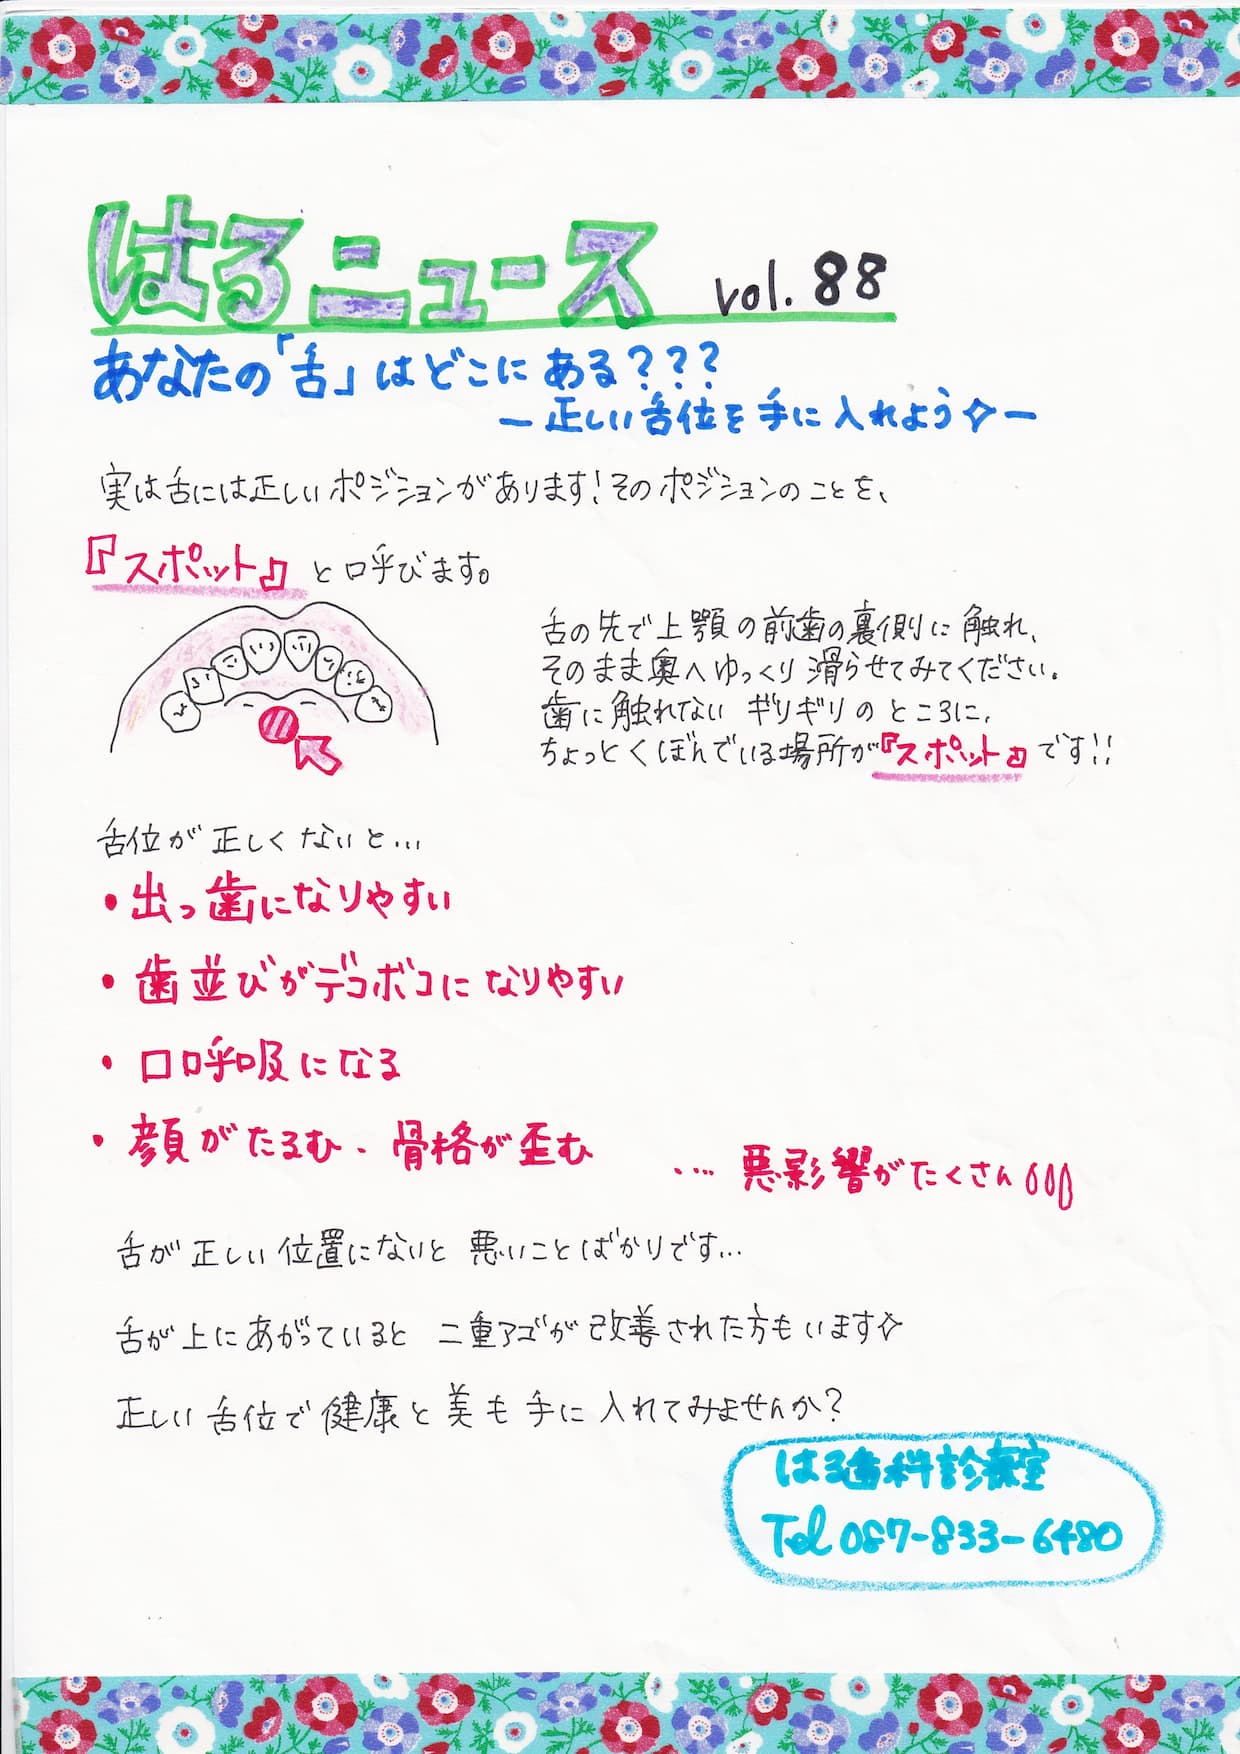 はるニュース vol.88
あなたの「舌」はどこにある???
ー正しい舌位を手に入れよう☆ー
実は舌には正しいポジションがあります!そのポジションのことを、
『スポット』と呼びます。
舌の先で上顎の前歯の裏側に触れ、
そのまま奥へゆっくり滑らせてみてください。
歯に触れないギリギリのところに、
ちょっとくぼんでいる場所が『スポット』です!!
舌位が正しくないと…
・出っ歯になりやすい
・歯並びがデコボコになりやすい
・口呼吸になる
・顔がたるむ、骨格が歪む
…悪影響がたくさん
舌が正しい位置にないと悪いことばかりです…
舌が上にあがっていると二重アゴが改善された方もいます☆
正しい舌位で健康と美も手に入れてみませんか?
はる歯科診療室
Tel 087-833-6480